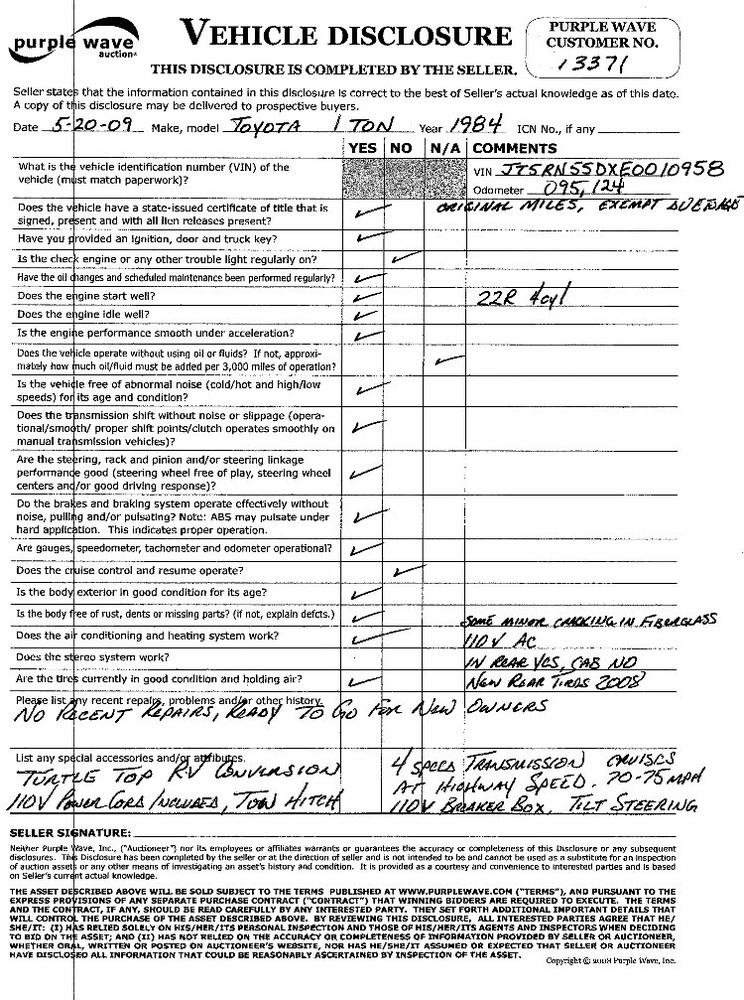 purple wave
auction
VEHICLE DISCLOSURE
THIS DISCLOSURE IS COMPLETED BY THE SELLER.
PURPLE WAVE
CUSTOMER NO.
13371
Seller states that the information contained in this disclosure is correct to the best of Seller's actual knowledge as of this date.
A copy of this disclosure may be delivered to prospective buyers.
Date 5-20-09 Make, model TOYOTA 1 TON Year 1984 ICN No., if any
YES NO N/A COMMENTS
What is the vehicle identification number (VIN) of the
vehicle (must match paperwork)?
VIN JT5RN55DXE0010958
Odometer 095,124
ORIGINAL MILES, EXEMPT
Does the vehicle have a state-issued certificate of title that is
signed, present and with all lien releases present?
Have you provided an ignition, door and truck key?
Is the check engine or any other trouble light regularly on?
Have the oil changes and scheduled maintenance been performed regularly?
Does the engine start well? 22R 4cyl
Does the engine idle well?
Is the engine performance smooth under acceleration?
Does the vehicle operate without using oil or fluids? If not, approxi-
mately how much oil/fluid must be added per 3,000 miles of operation?
Is the vehicle free of abnormal noise (cold/hot and high/low
speeds) for its age and condition?
Does the transmission shift without noise or slippage (opera-
tional/smooth/ proper shift points/clutch operates smoothly on
manual transmission vehicles)?
Are the steering, rack and pinion and/or steering linkage
performance good (steering wheel free of play, steering wheel
centers and/or good driving response)?
Do the brakes and braking system operate effectively without
noise, pulling and/or pulsating? Note: ABS may pulsate under
hard application. This indicates proper operation.
Are gauges, speedometer, tachometer and odometer operational?
Does the cruise control and resume operate?
Is the body exterior in good condition for its age?
Is the body free of rust, dents or missing parts? (if not, explain defcts.) SOME MINOR CRACKING IN FIBERGLASS
Does the air conditioning and heating system work? 110V AC
Does the stereo system work? IN REAR YES, CAB NO
Are the tires currently in good condition and holding air? NEW REAR TIRES 2008
Please list any recent repairs, problems and/or other history.
NO RECENT REPAIRS, READY TO GO FOR NEW OWNERS
List any special accessories and/or attributes.
TURTLE TOP RV CONVERSION
110V POWER CORD INCLUDED, TOW HITCH
4 SPEED TRANSMISSION CRUISES
AT HIGHWAY SPEED. 70-75MPH
110V BREAKER BOX, TILT STEERING
SELLER SIGNATURE:
Neither Purple Wave, Inc., ("Auctioneer") nor its employees or affiliates warrants or guarantees the accuracy or completeness of this Disclosure or any subsequent
disclosures. This Disclosure has been completed by the seller or at the direction of seller and is not intended to be and cannot be used as a substitute for an inspection
of auction assets or any other means of investigating an asset's history and condition. It is provided as a courtesy and convenience to interested parties and is based
on Seller's current actual knowledge.
THE ASSET DESCRIBED ABOVE WILL BE SOLD SUBJECT TO THE TERMS PUBLISHED AT WWW.PURPLEWAVE.COM ("TERMS"), AND PURSUANT TO THE
EXPRESS PROVISIONS OF ANY SEPARATE PURCHASE CONTRACT ("CONTRACT") THAT WINNING BIDDERS ARE REQUIRED TO EXECUTE. THE TERMS
AND THE CONTRACT, IF ANY, SHOULD BE READ CAREFULLY BY ANY INTERESTED PARTY. THEY SET FORTH ADDITIONAL IMPORTANT DETAILS THAT
WILL CONTROL THE PURCHASE OF THE ASSET DESCRIBED ABOVE. BY REVIEWING THIS DISCLOSURE, ALL INTERESTED PARTIES AGREE THAT HE/
SHE/IT: (I) HAS RELIED SOLELY ON HIS/HER/ITS PERSONAL INSPECTION AND THOSE OF HIS/HER/ITS AGENTS AND INSPECTORS WHEN DECIDING
TO BID ON THE ASSET; AND (II) HAS NOT RELIED ON THE ACCURACY OR COMPLETENESS OF INFORMATION PROVIDED BY SELLER OR AUCTIONEER,
WHETHER ORAL, WRITTEN OR POSTED ON AUCTIONEER'S WEBSITE, NOR HAS HE/SHE/IT ASSUMED OR EXPECTED THAT SELLER OR AUCTIONEER
HAVE DISCLOSED ALL INFORMATION THAT COULD BE REASONABLY ASCERTAINED BY INSPECTION OF THE ASSET.
Copyright © 2008 Purple Wave, Inc.